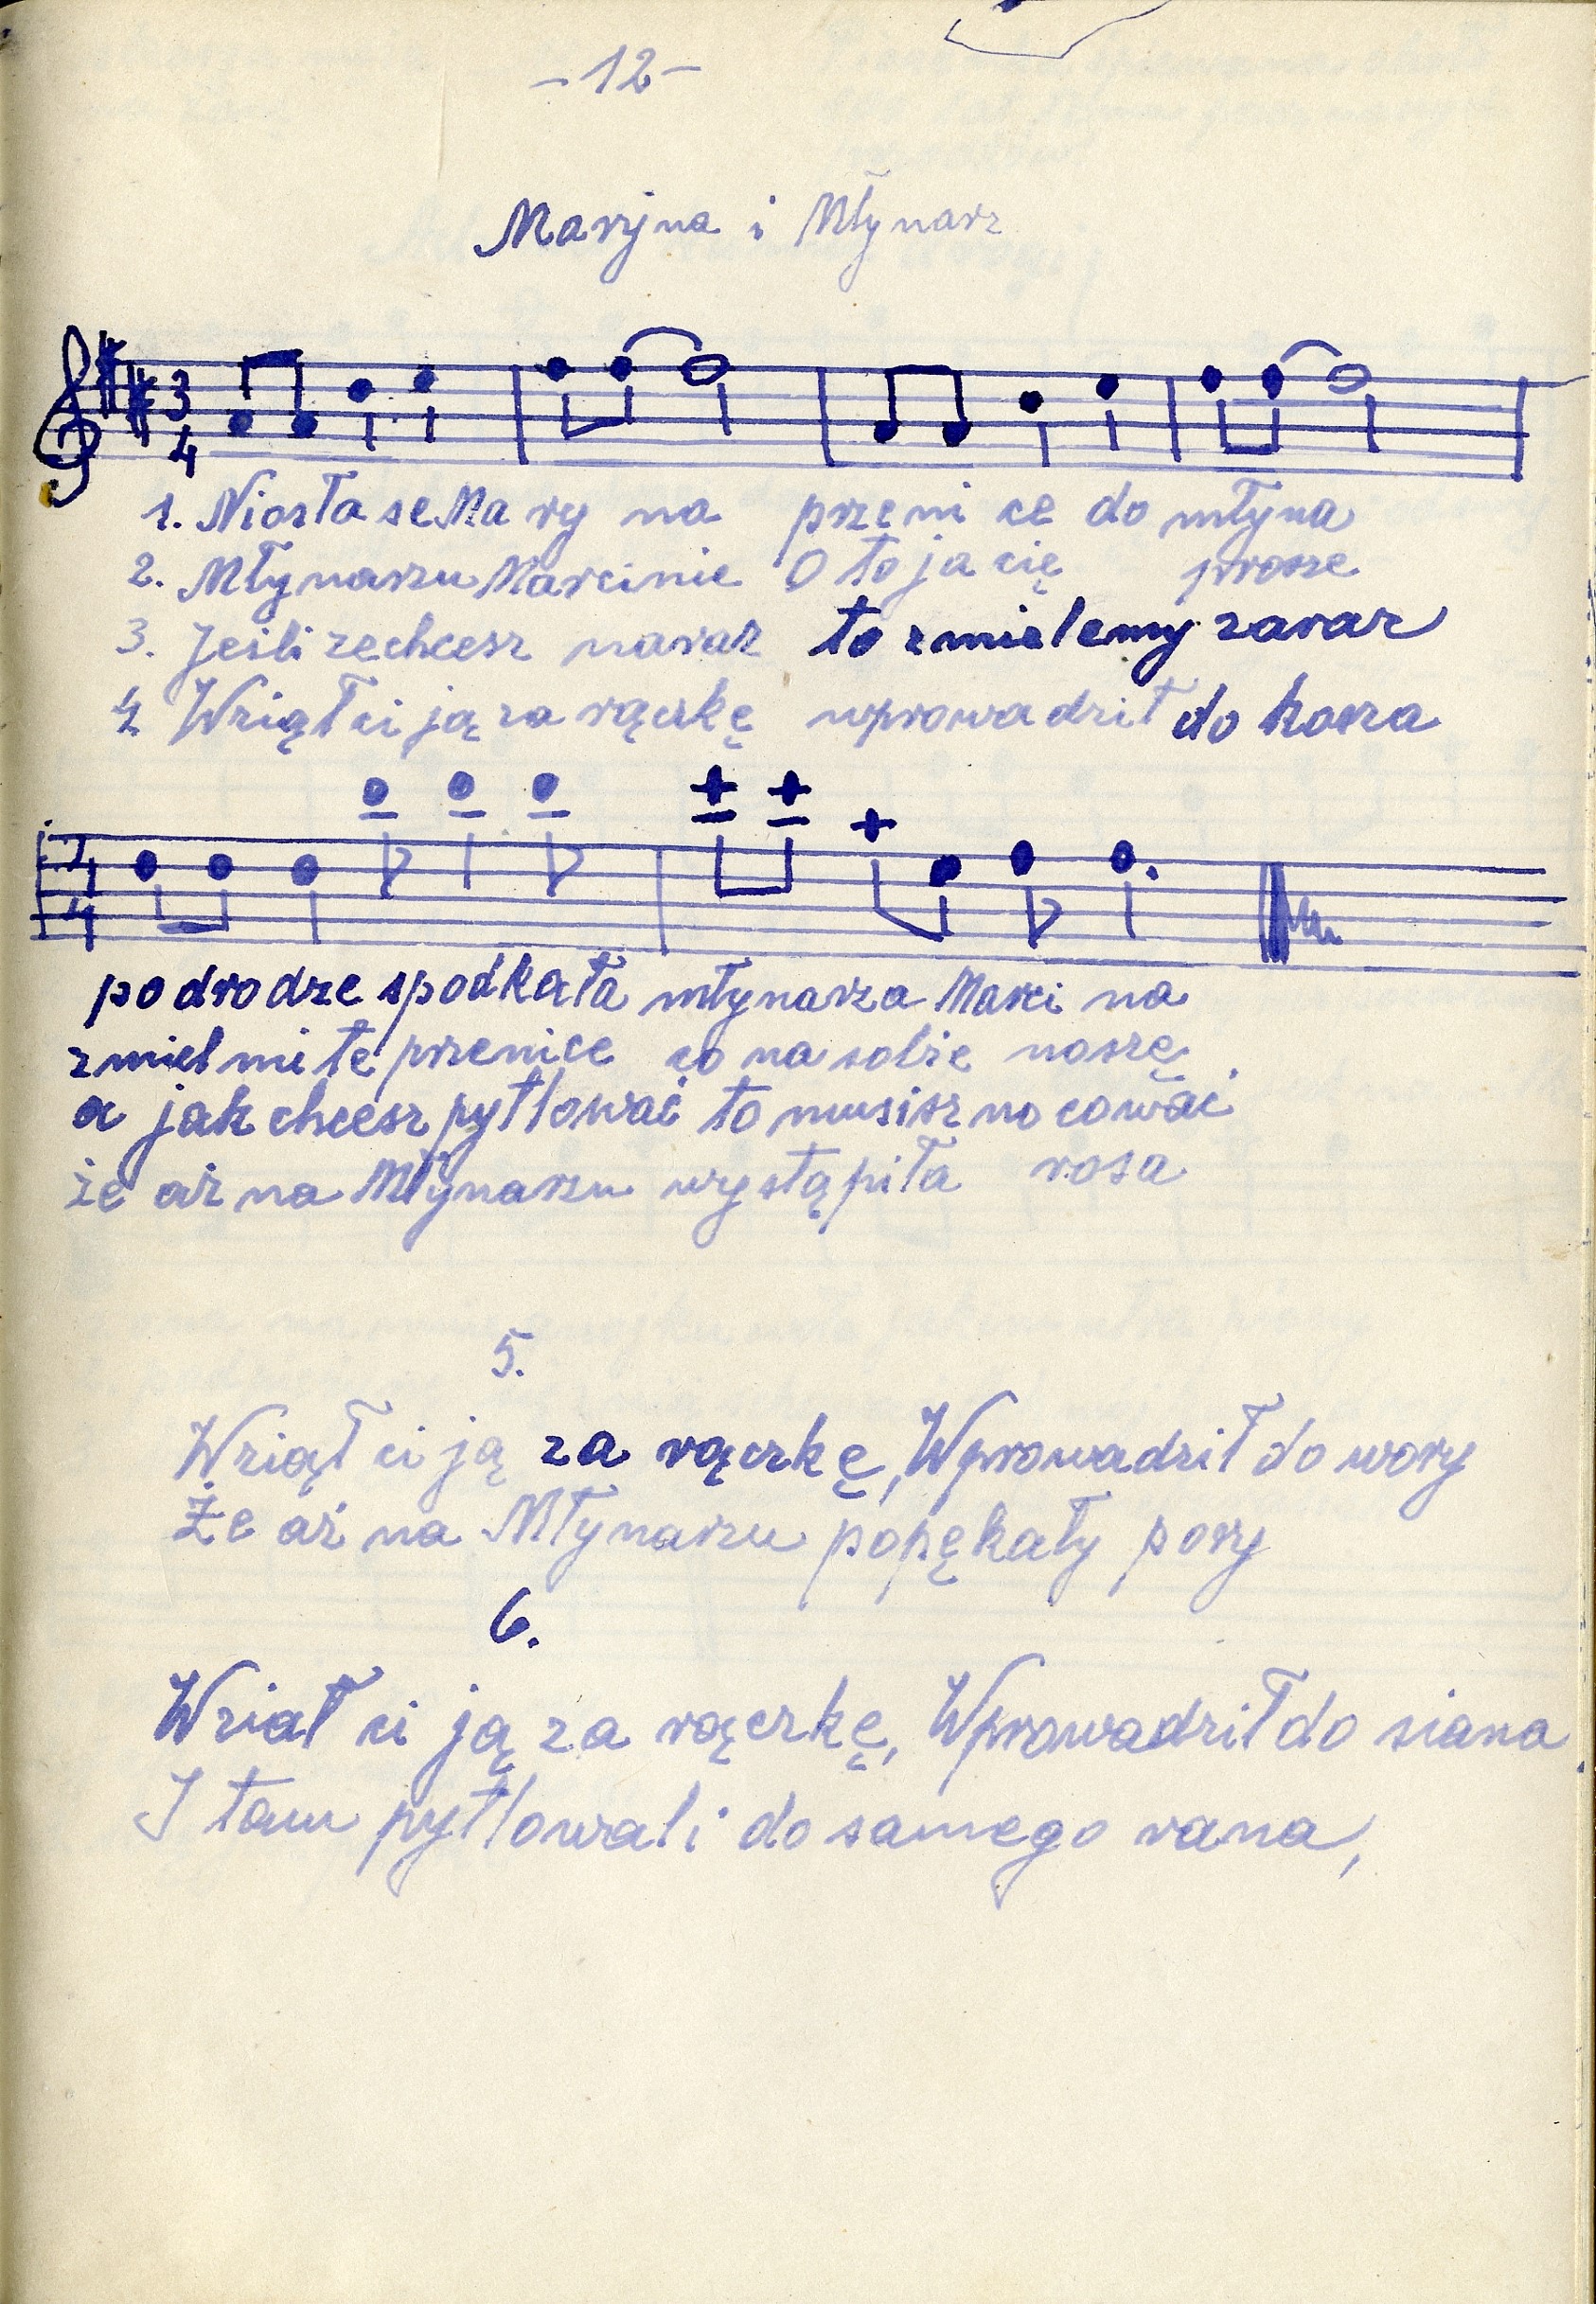 -12-
Maryna i Młynarz
3
4
1. Niosła se Ma ry na przeni ce do młyna
2. Młynarzu Marcinie O to ja cię prosze
3. Jeśli zechcesz naraz to zmielemy zaraz
4 Wziął ci ją za rączkę wprowadził do kosza
4
4
po drodze spodkała młynarza Marci na
zmiel mi te przenice co na sobie noszę
a jak chcesz pytlować to musisz no cować
że aż na Młynarzu wystąpiła rosa
5.
Wziął ci ją za rączkę, Wprowadził do wory
Że aż na Młynarzu popękały pory
6.
Wział ci ją za rączkę, Wprowadził do siana
I tam pytlowali do samego rana,